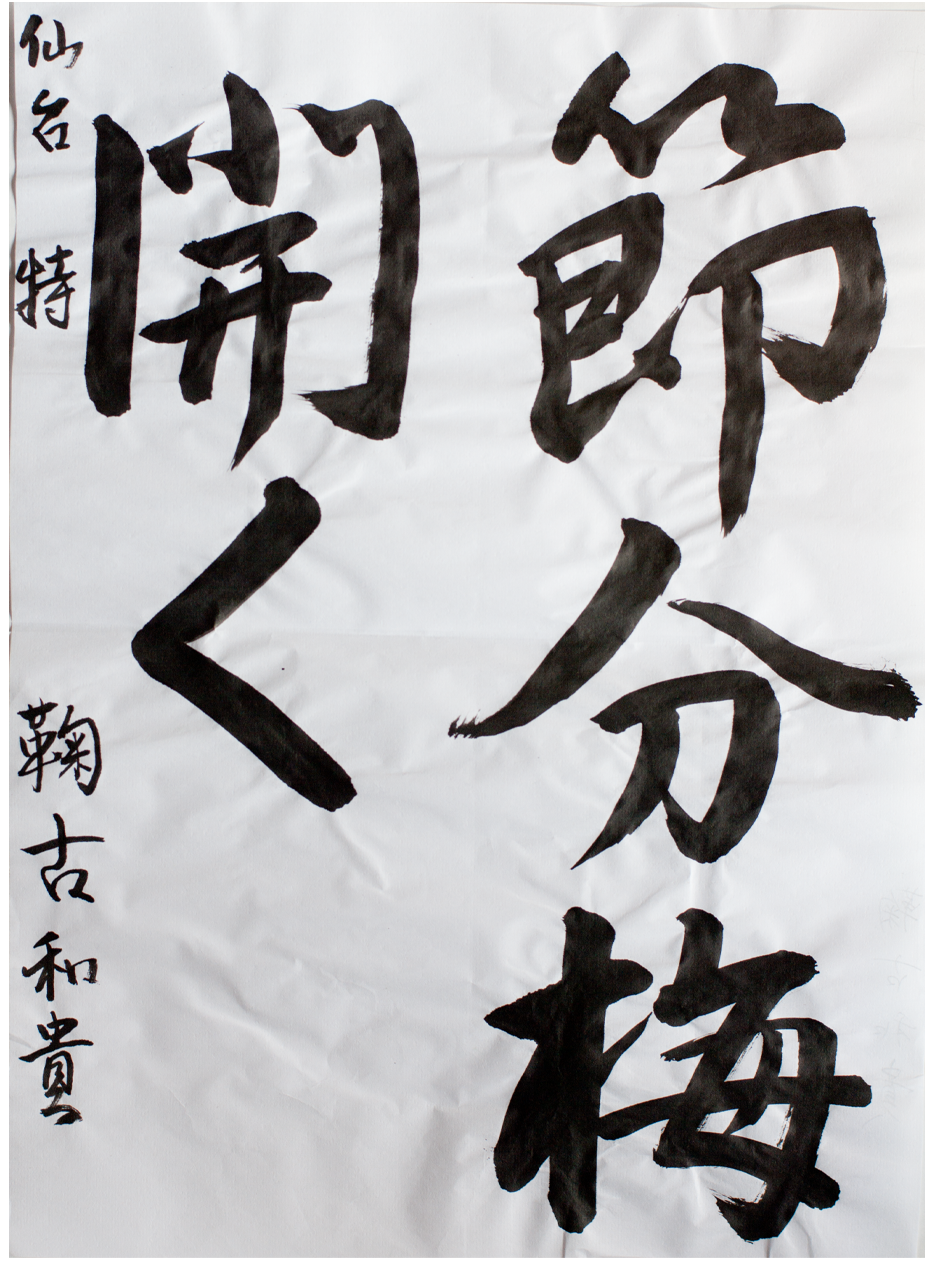 節分梅
開く
仙台 特 鞠古和貴